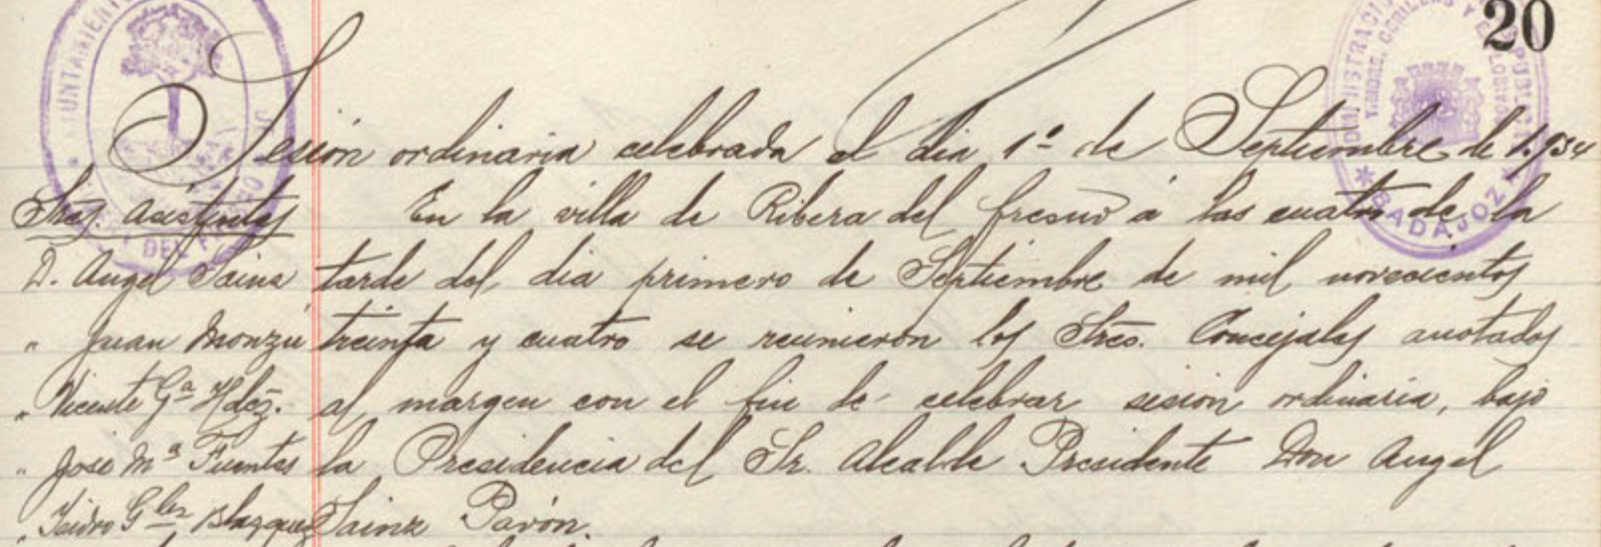 20
Sesión ordinaria celebrada el dia 1º de Septiembre de 1.934
Sres. Asistentes
D. Angel Sainz
" Juan Monzú
" Vicente Gª Hdez.
" José Mª Fuentes
" Isidro Glez Blazquez
En la villa de Ribera del Fresno á las cuatro de la
tarde del dia primero de Septiembre de mil novecientos
treinta y cuatro se reunieron los Sres. Concejales anotados
al margen con el fin de celebrar sesion ordinaria, bajo
la Presidencia del Sr. Alcalde Presidente Don Angel
Sainz Pavón.
AYUNTAMIENTO
DEL
BADAJOZ